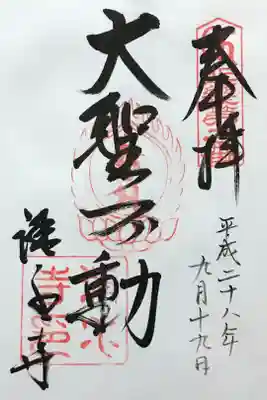 奉拝
平成二十八年
九月十九日
大聖不動